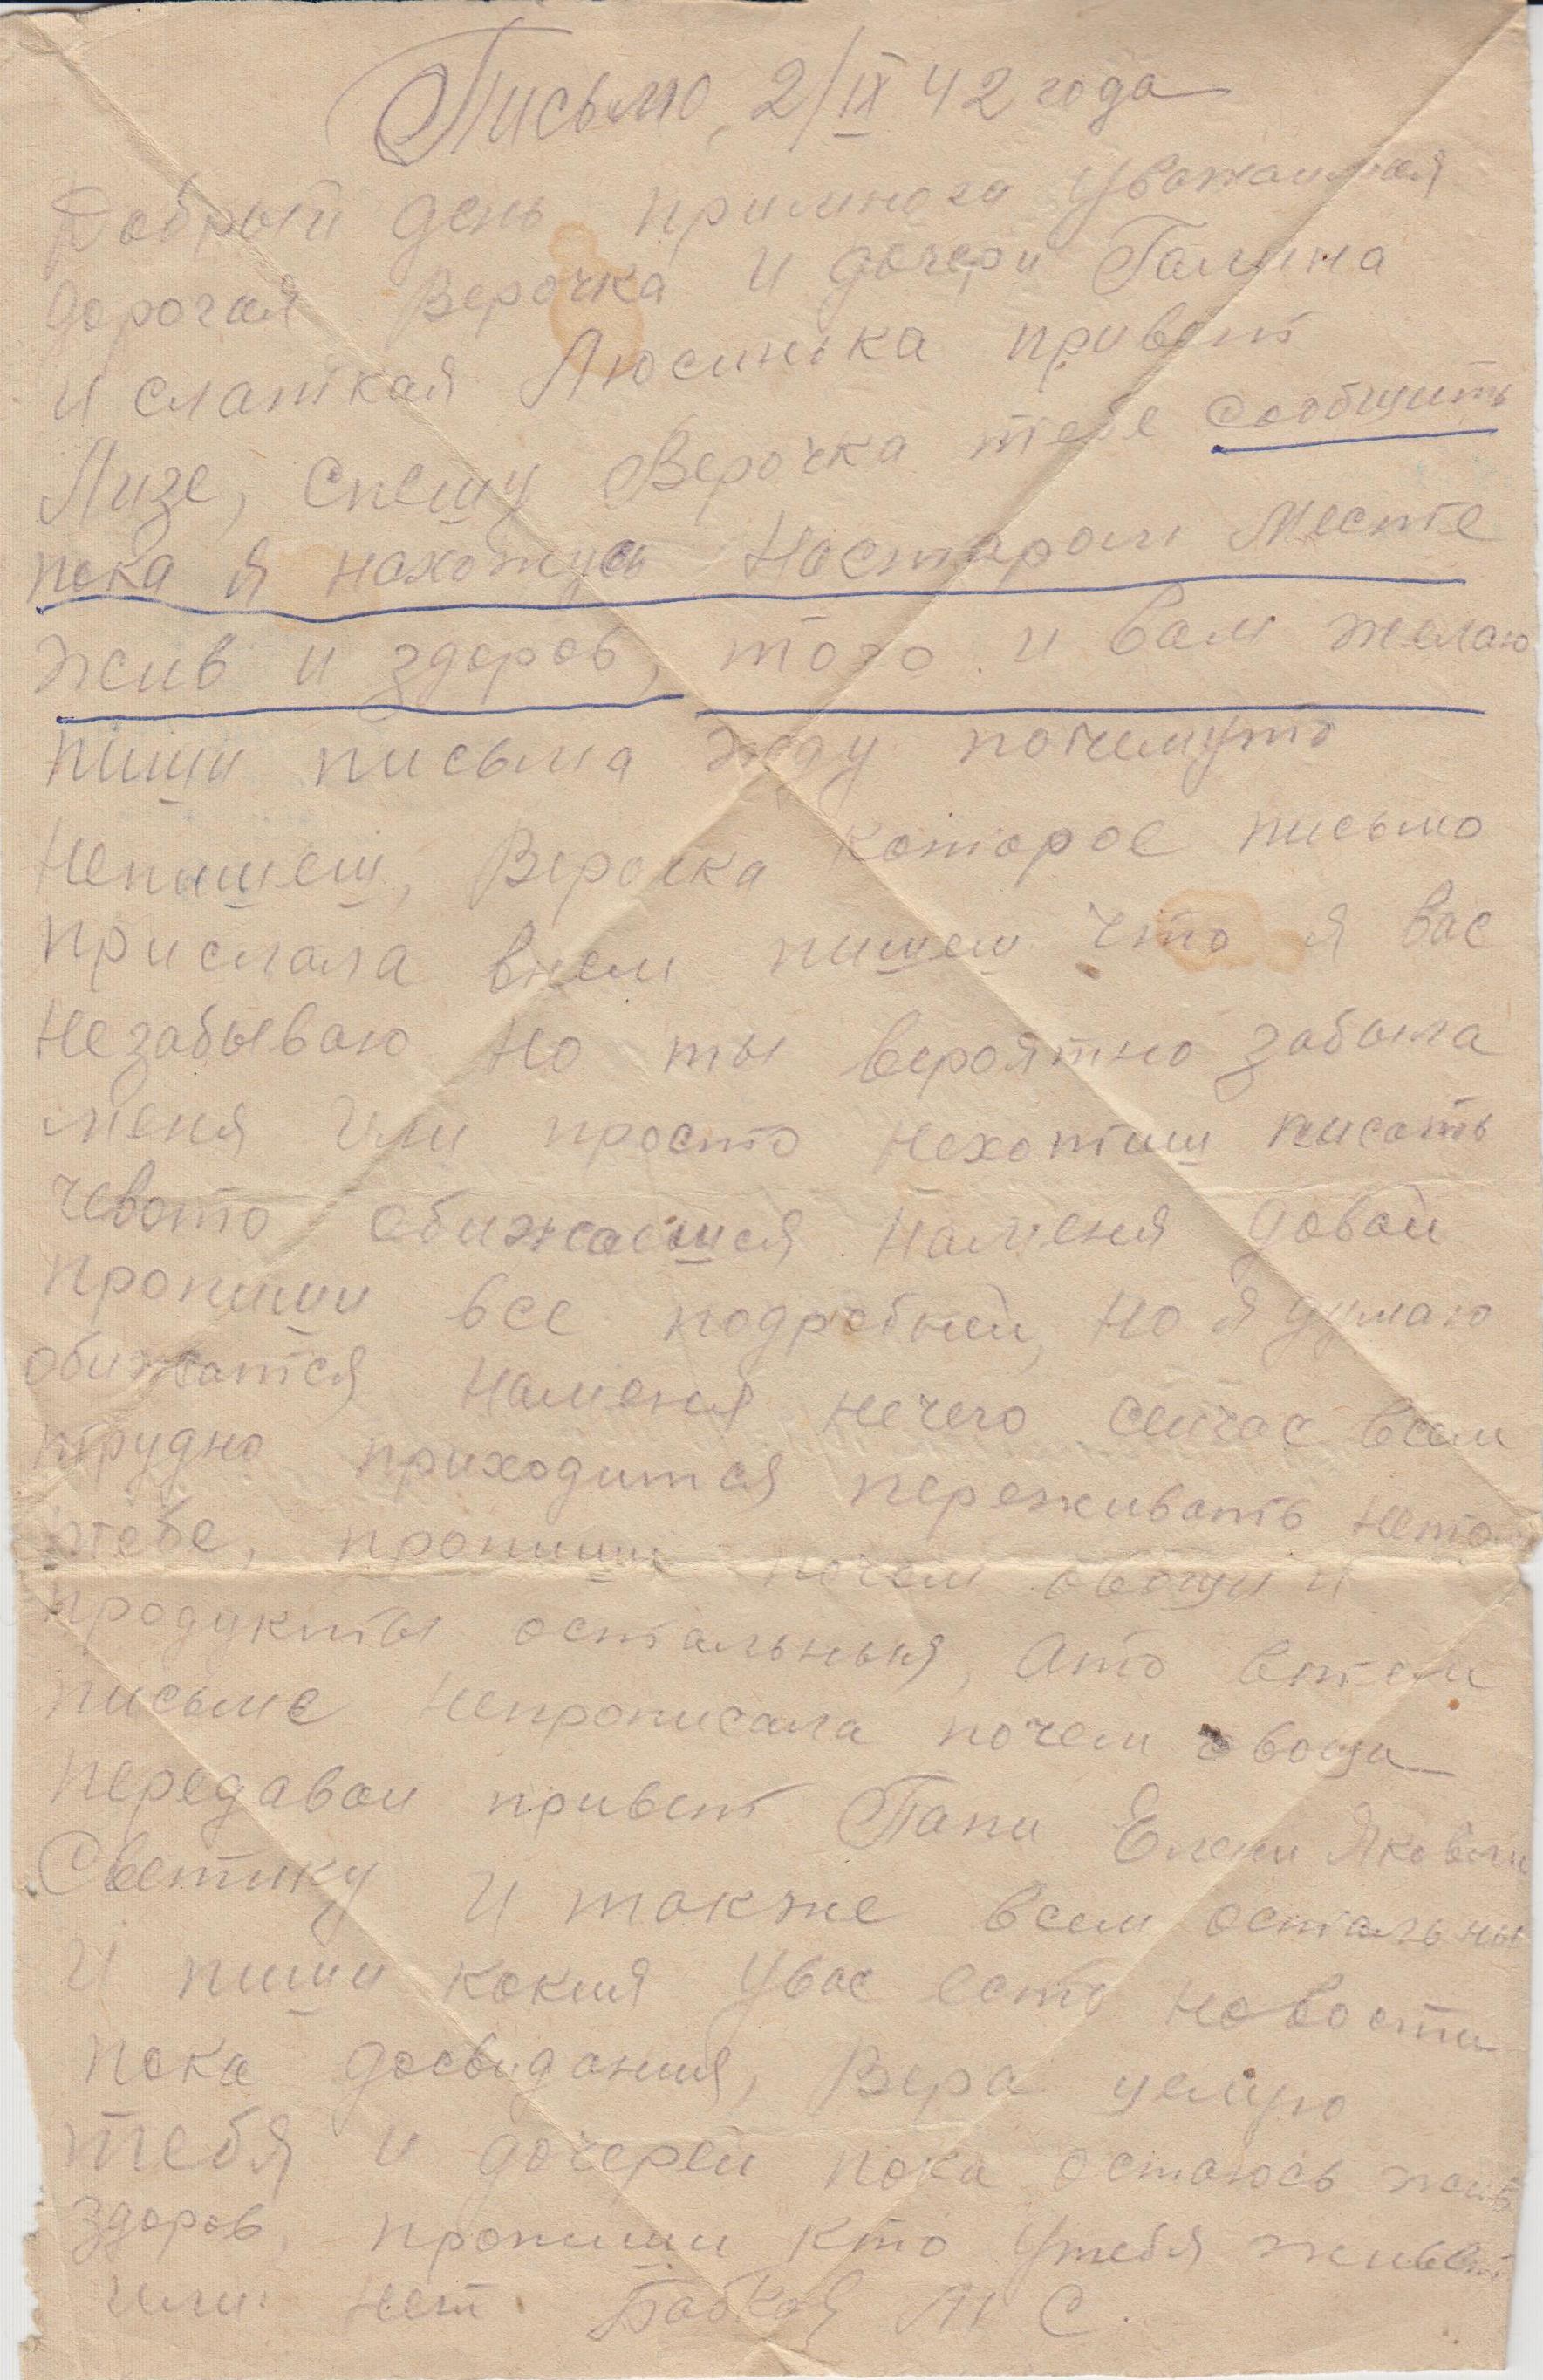 Письмо, 2/IX 42 года
Добрый день примного уважаимая
дорогая Верочка и дочери Галина
и слаткая Люсинька привет
Лизе, Спешу Верочка тебе сообщить
пока я нахожусь Настаром месте
жив и здоров, того и вам желаю
пиши письма жду почемуто
Непишеш, Верочка которое письмо
прислала внем пишеш что я вас
незабываю но ты вероятно забыла
меня или просто нехотиш писать
чевото обижаешся наменя давай
пропиши все подробней, но я думаю
обижатся наменя нечего сейчас всем
трудно приходится переживать нето
тебе, пропиши почем овощи и
продукты остальныя, Ато втем
письме непрописала почем овощи
передавай привет Папи Елени Яковлн
Светику и также всем остальны
И пиши какия увас есть новости
пока досвидания, Вера целую
тебя и дочерей пока остаюсь жив
здоров, пропиши кто утебя живет
или нет. М С.